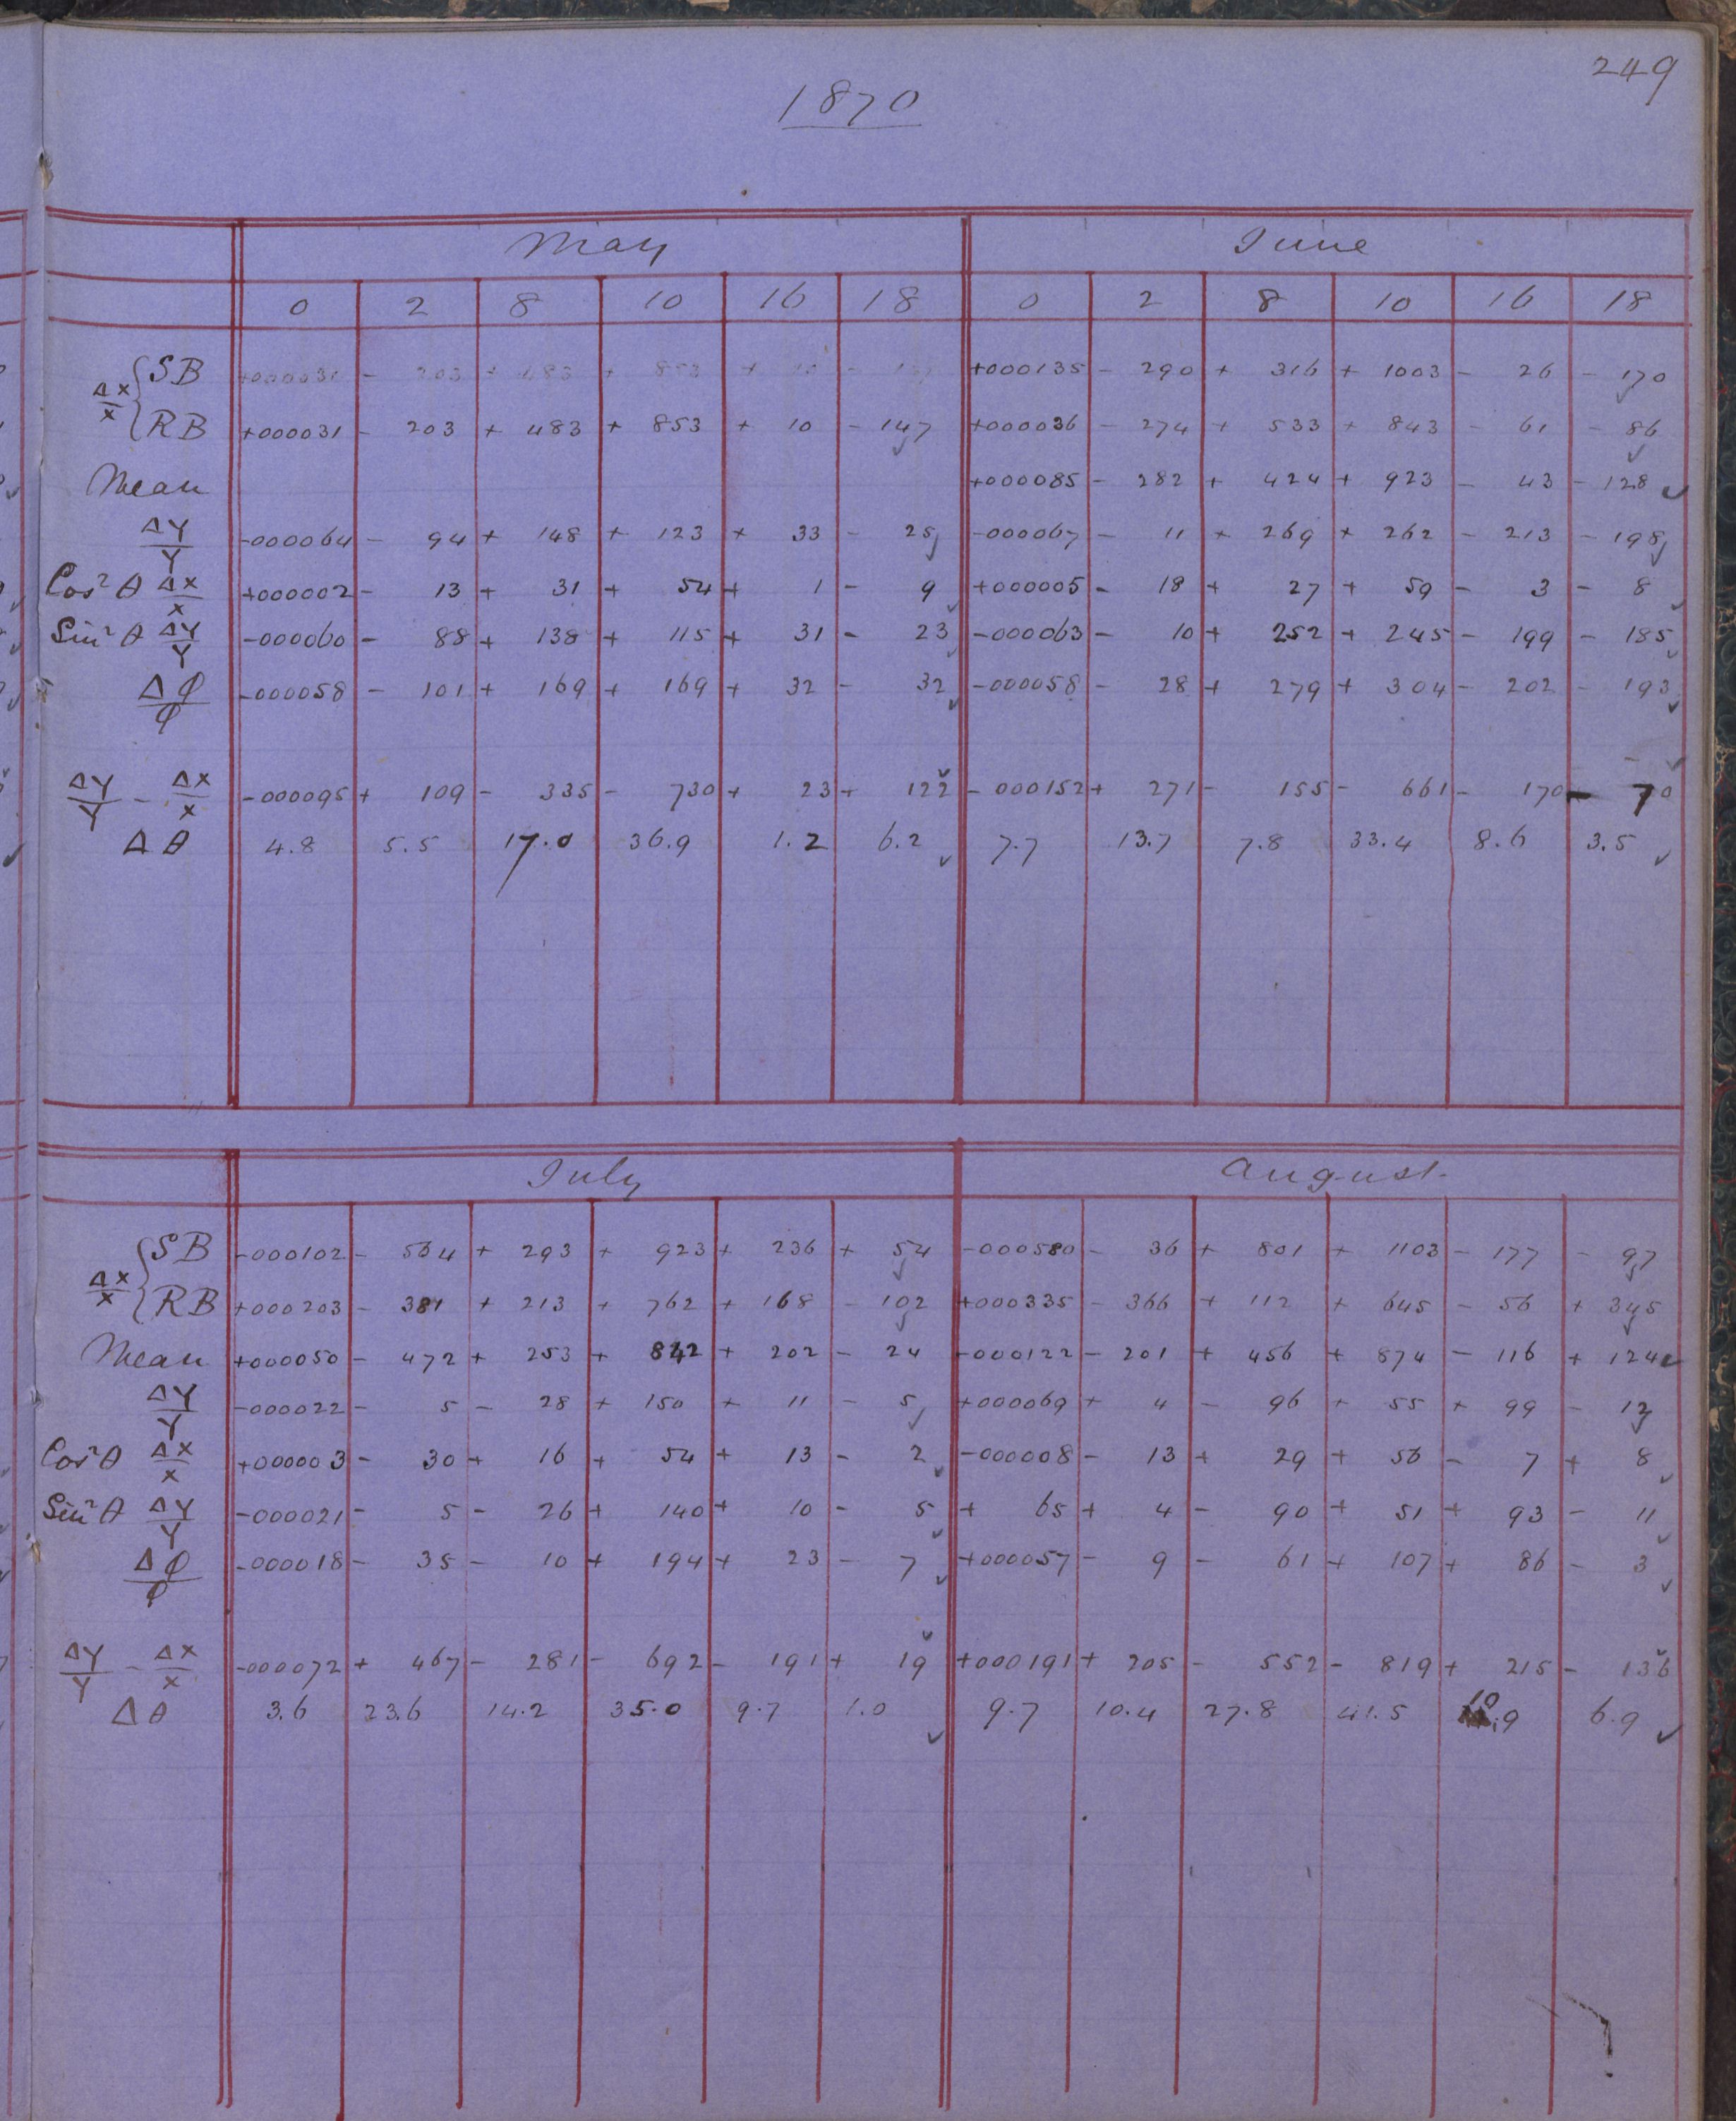 249
1870
May June
0 2 8 10 16 18 0 2 8 10 16 18
ΔX/X { SB +000031 - 203 + 483 + 853 + 10 - +000135 - 290 + 316 + 1003 - 26 - 170
RB +000031 - 203 + 483 + 853 + 10 - 147 +000036 - 274 + 533 + 843 - 61 - 86
Mean +000085 - 282 + 424 + 923 - 43 - 128
ΔY/Y -000064 - 94 + 148 + 123 + 33 - 25 -000067 - 11 + 269 + 262 - 213 - 198
Cos²θ ΔX/X +000002 - 13 + 31 + 54 + 1 - 9 +000005 - 18 + 27 + 59 - 3 - 8
Sin²θ ΔY/Y -000060 - 88 + 138 + 115 + 31 - 23 -000063 - 10 + 252 + 245 - 199 - 185
Δφ/φ -000058 - 101 + 169 + 169 + 32 - 32 -000058 - 28 + 279 + 304 - 202 - 193
ΔY/Y - ΔX/X -000095 + 109 - 335 - 730 + 23 + 122 -000152 + 271 - 155 - 661 - 170 - 70
Δθ 4.8 5.5 17.0 36.9 1.2 6.2 7.7 13.7 7.8 33.4 8.6 3.5
July August
ΔX/X { SB -000102 - 564 + 293 + 923 + 236 + 54 -000580 - 36 + 801 + 1103 - 177 - 97
RB +000203 - 381 + 213 + 762 + 168 - 102 +000335 - 366 + 112 + 645 - 56 + 345
Mean +000050 - 472 + 253 + 842 + 202 - 24 -000122 - 201 + 456 + 874 - 116 + 124
ΔY/Y -000022 - 5 - 28 + 150 + 11 - 5 +000069 + 4 - 96 + 55 + 99 - 12
Cos²θ ΔX/X +000003 - 30 + 16 + 54 + 13 - 2 -000008 - 13 + 29 + 56 - 7 + 8
Sin²θ ΔY/Y -000021 - 5 - 26 + 140 + 10 - 5 + 65 + 4 - 90 + 51 + 93 - 11
Δφ/φ -000018 - 35 - 10 + 194 + 23 - 7 +000057 - 9 - 61 + 107 + 86 - 3
ΔY/Y - ΔX/X -000072 + 467 - 281 - 692 - 191 + 19 +000191 + 205 - 552 - 819 + 215 - 136
Δθ 3.6 23.6 14.2 35.0 9.7 1.0 9.7 10.4 27.8 41.5 10.9 6.9